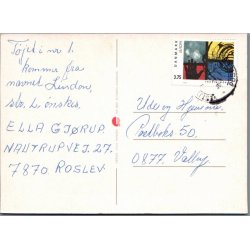 Tøjet i nr. 1.
kommer fra
navnet Lindon,
str. L ønskes.
ELLA GJØRUP
NAUTRUPVEJ. 27.
7870 ROSLEV.
DANMARK
3.75
Ude og Hjemme
Postboks 50.
0877. Valby